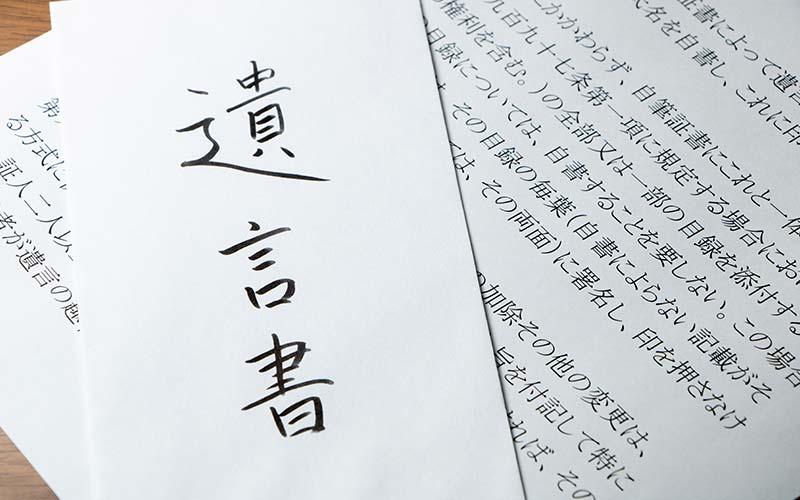 遺言書
証書によって遺言
氏名を自書し、これに印
にかかわらず、自筆証書にこれと一体
九百九十七条第一項に規定する場合にお
権利を含む。)の全部又は一部の目録を添付する
の目録については、自書することを要しない。この場合
その目録の毎葉(自書によらない記載がそ
は、その両面)に署名し、印を押さなけ
の加除その他の変更は、
旨を付記して特に
れば、その
第
る方式に
証人二人以
者が遺言の趣